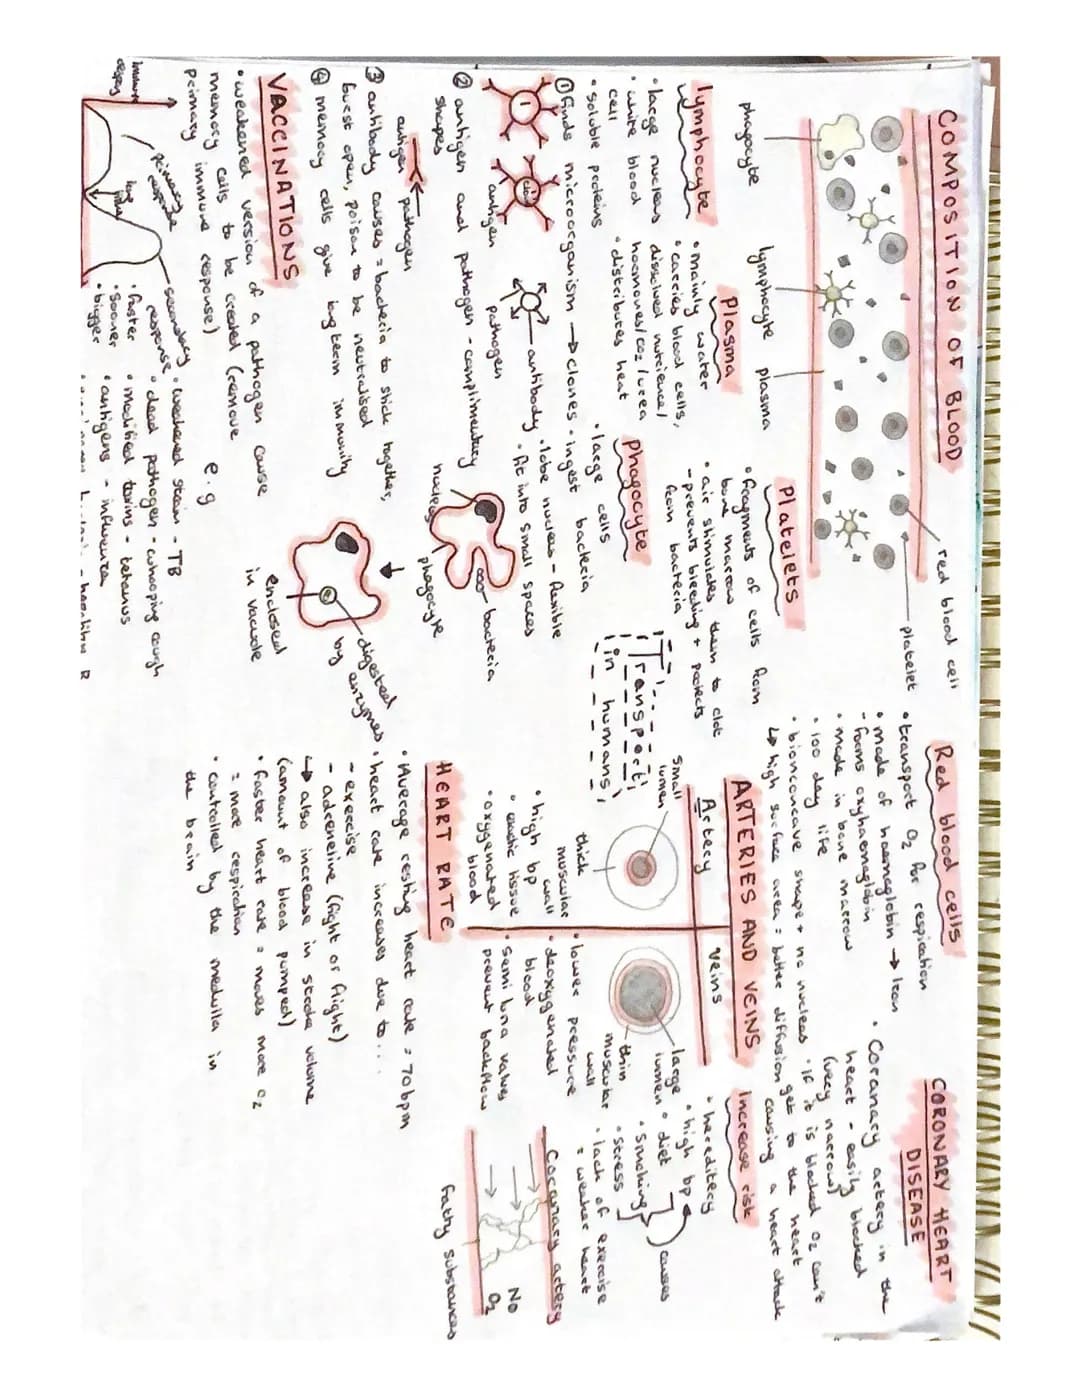 COMPOSITION OF BLOOD
red blood cell
platelet
phagocyte
lymphocyte
plasma
lymphocyte
• large nucleus
• white blood
cell
• soluble proteins
① finds microorganism → clones
antigen
antibody
pathogen
② antigen and pathogen - complimentary
shapes
antigen
pathogen
③ antibody causes = bacteria to stick together,
burst open, poison to be neutralised
④ memory cells give long term immunity
Plasma
• mainly water
• carries blood cells,
dissolved nutrience/
hormones/CO2/urea
• distributes heat
Platelets
• fragments of cells from
bone marrow
• air stimulates them to clot
- prevents bleeding + protects
from bacteria
phagocyte
• large cells
• ingest bacteria
• lobe nucleus - flexible
• fit into small spaces
bacteria
nucleus
phagocyte
digested
by enzymes
enclosed
in vacuole
VACCINATIONS
• weakened version of a pathogen cause
memory cells to be created (remove
primary immune response)
primary
response
secondary
response
• faster
• sooner
• bigger
e.g
• weakened strain - TB
• dead pathogen - whooping cough
• modified toxins - tetanus
• antigens - influenza
Transport
in humans
Red blood cells
• transport O2 for respiration
• made of haemaglobin → Iron
- forms oxyhaemaglobin
• made in bone marrow
• 100 day life
• bionconcave shape + no nucleas
↳ high surface area = better diffusion
ARTERIES AND VEINS
Artery
Veins
small
lumen
thick
muscular
wall
• high bp
• elastic tissue
• oxygenated
blood
large
lumen
thin
muscular
wall
• lower pressure
• deoxygenated
blood
• semi luna valves
prevent backflow
HEART RATE
• Average resting heart rate = 70bpm
• heart rate increases due to...
- exercise
- adreneline (fight or flight)
→ also increase in stroke volume
(amount of blood pumped)
• faster heart rate = moves more O2
= more respiration
• controlled by the medulla in
the brain
CORONARY HEART
DISEASE
• Coranary artery in the
heart - easily blocked
(very narrow)
• if it is blocked O2 can't
get to the heart
causing a heart attack
Increase risk
• hereditery
• high bp
• diet
• Smoking
• stress
causes
• lack of exercise
= weaker heart
Coranary artery
NO
O2
fatty substances